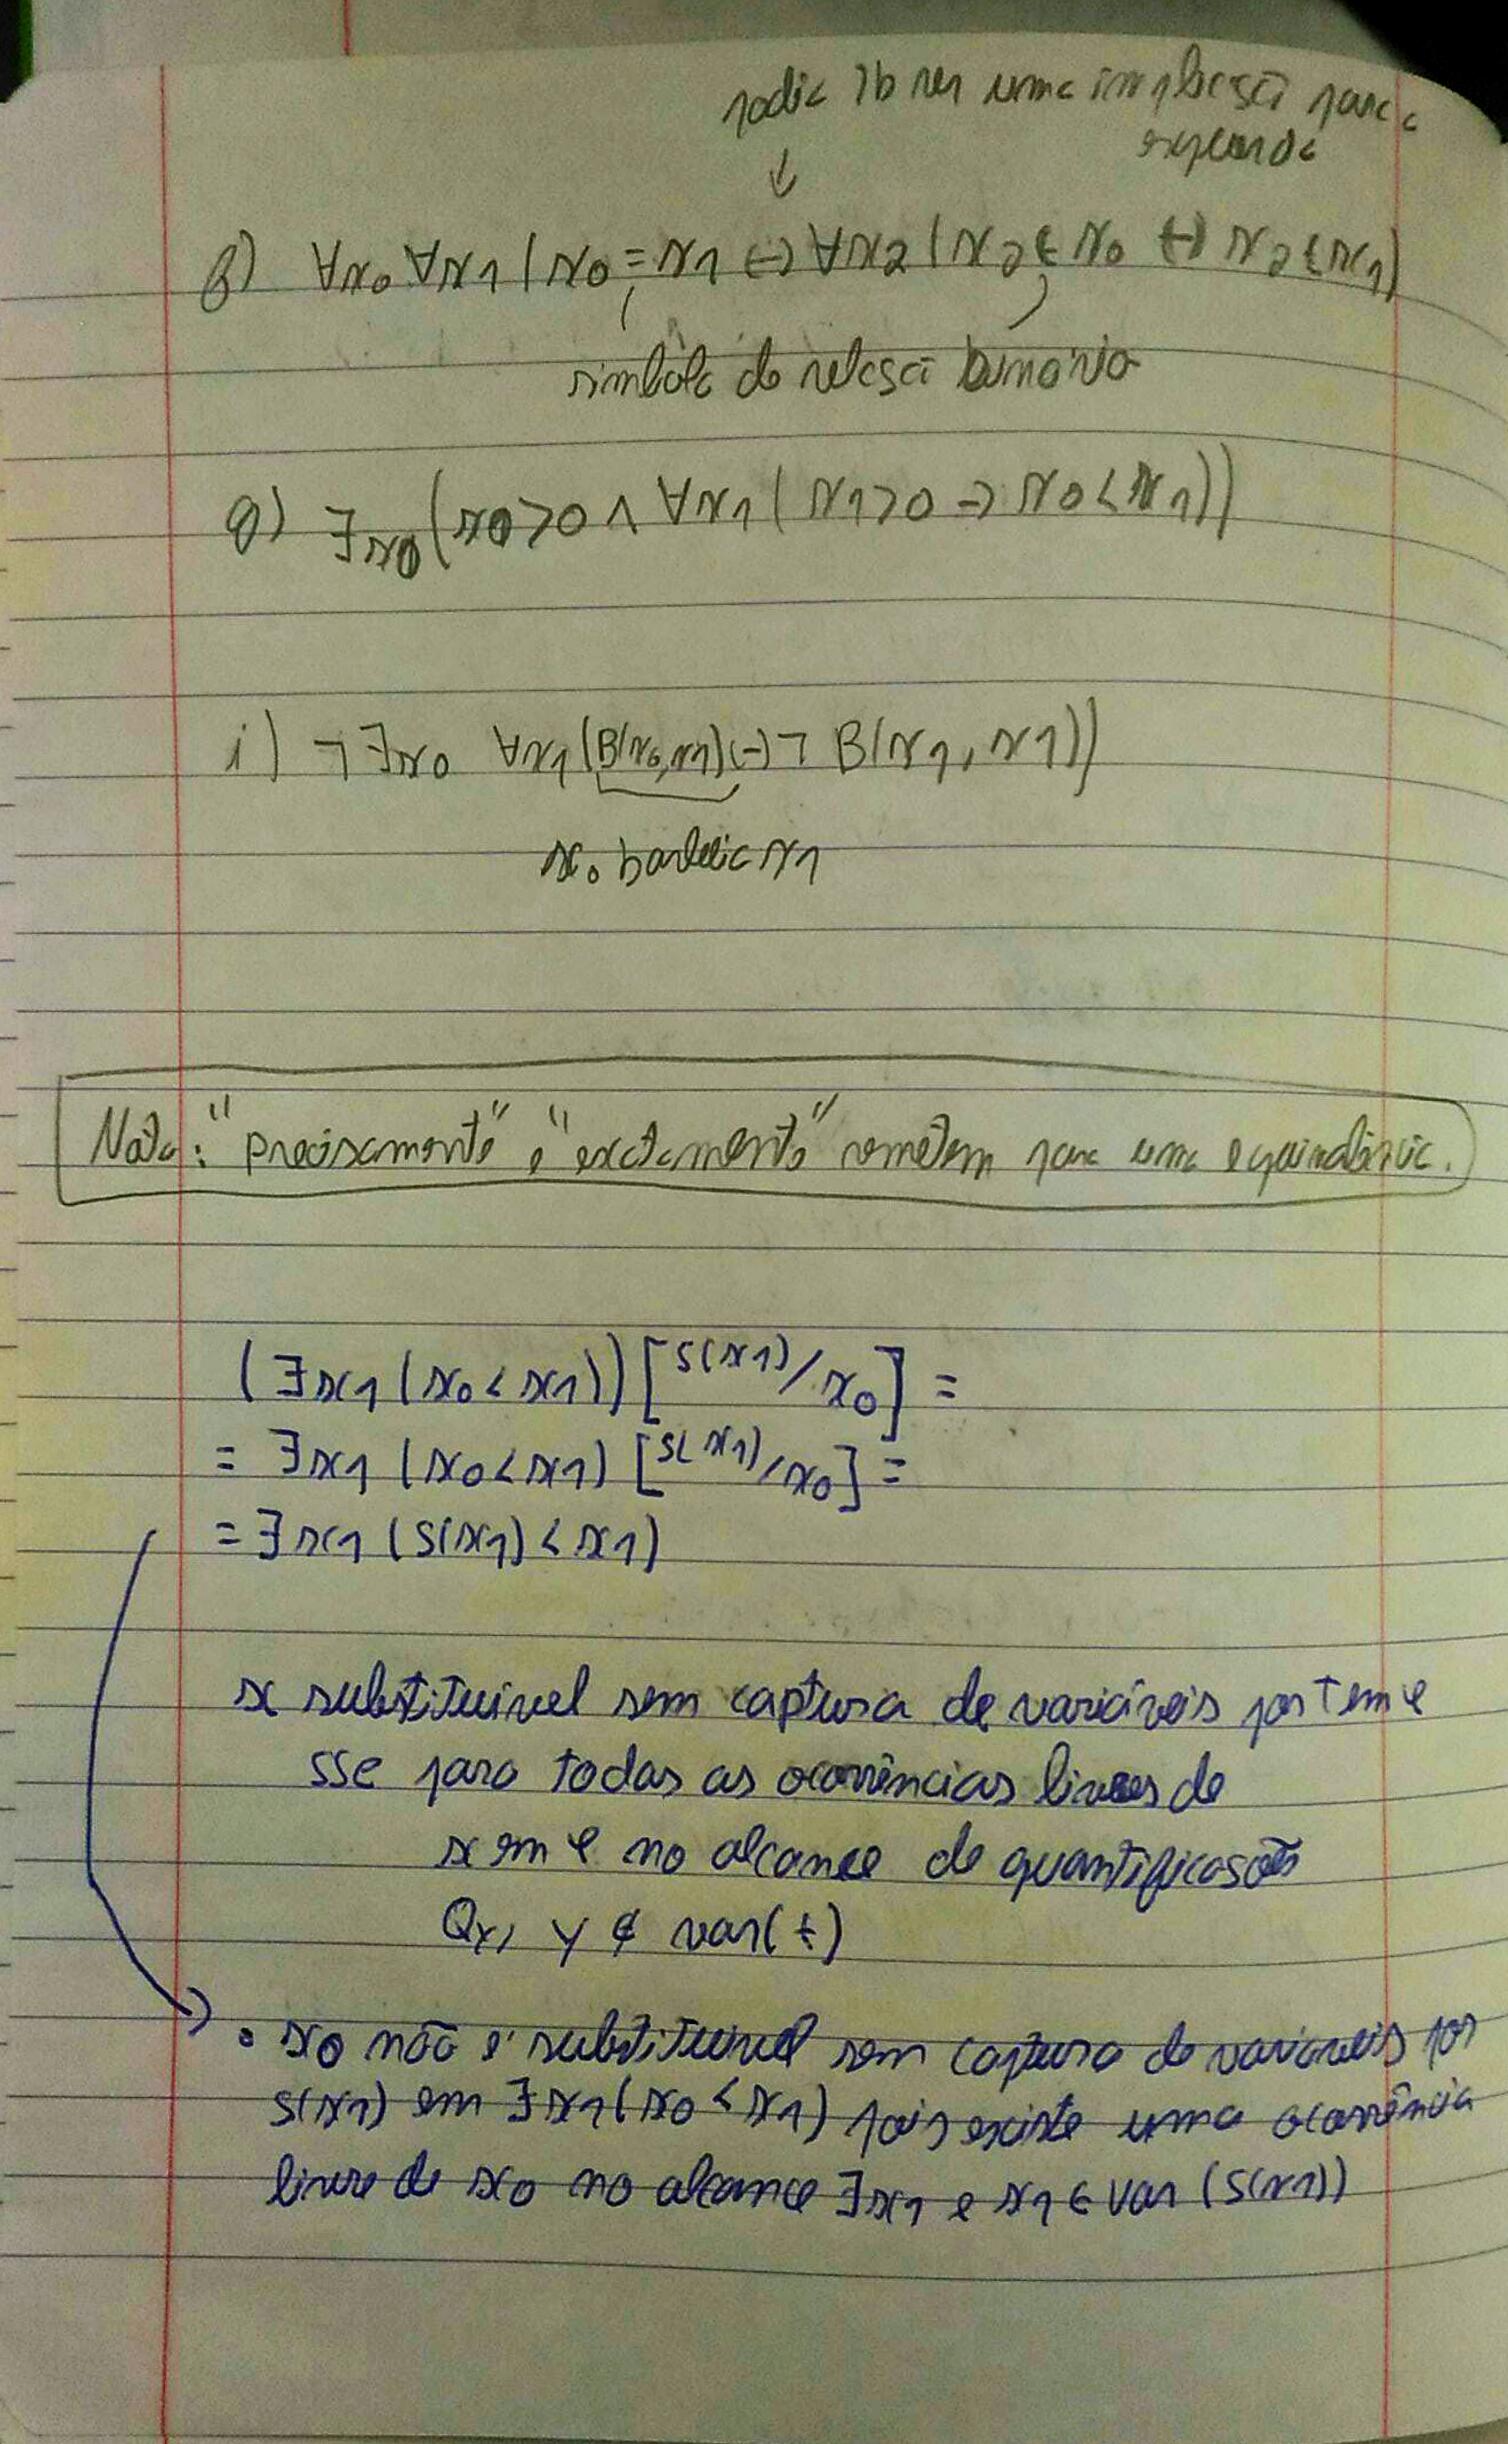 podia tb ser uma implicação para a
esquerda
↓
f) ∀x0 ∀x1 (x0 = x1 ↔ ∀x2 (x2 ∈ x0 ↔ x2 ∈ x1)
símbolo de relação binária
g) ∃x0 (x0 > 0 ∧ ∀x1 (x1 > 0 → x0 < x1))
i) ¬∃x0 ∀x1 (B(x0, x1) ↔ ¬ B(x1, x1))
x0 barbeia x1
Nota: "precisamente" e "exatamente" remetem para uma equivalência.
(∃x1 (x0 < x1)) [S(x1)/x0] =
= ∃x1 (x0 < x1) [S(x1)/x0] =
= ∃x1 (S(x1) < x1)
x substituível sem captura de variáveis por t em φ
sse para todas as ocorrências livres de
x em φ no alcance de quantificações
Qy, y ∉ var(t)
• x0 não é substituível sem captura de variáveis por
S(x1) em ∃x1 (x0 < x1) pois existe uma ocorrência
livre de x0 no alcance ∃x1 e x1 ∈ var (S(x1))